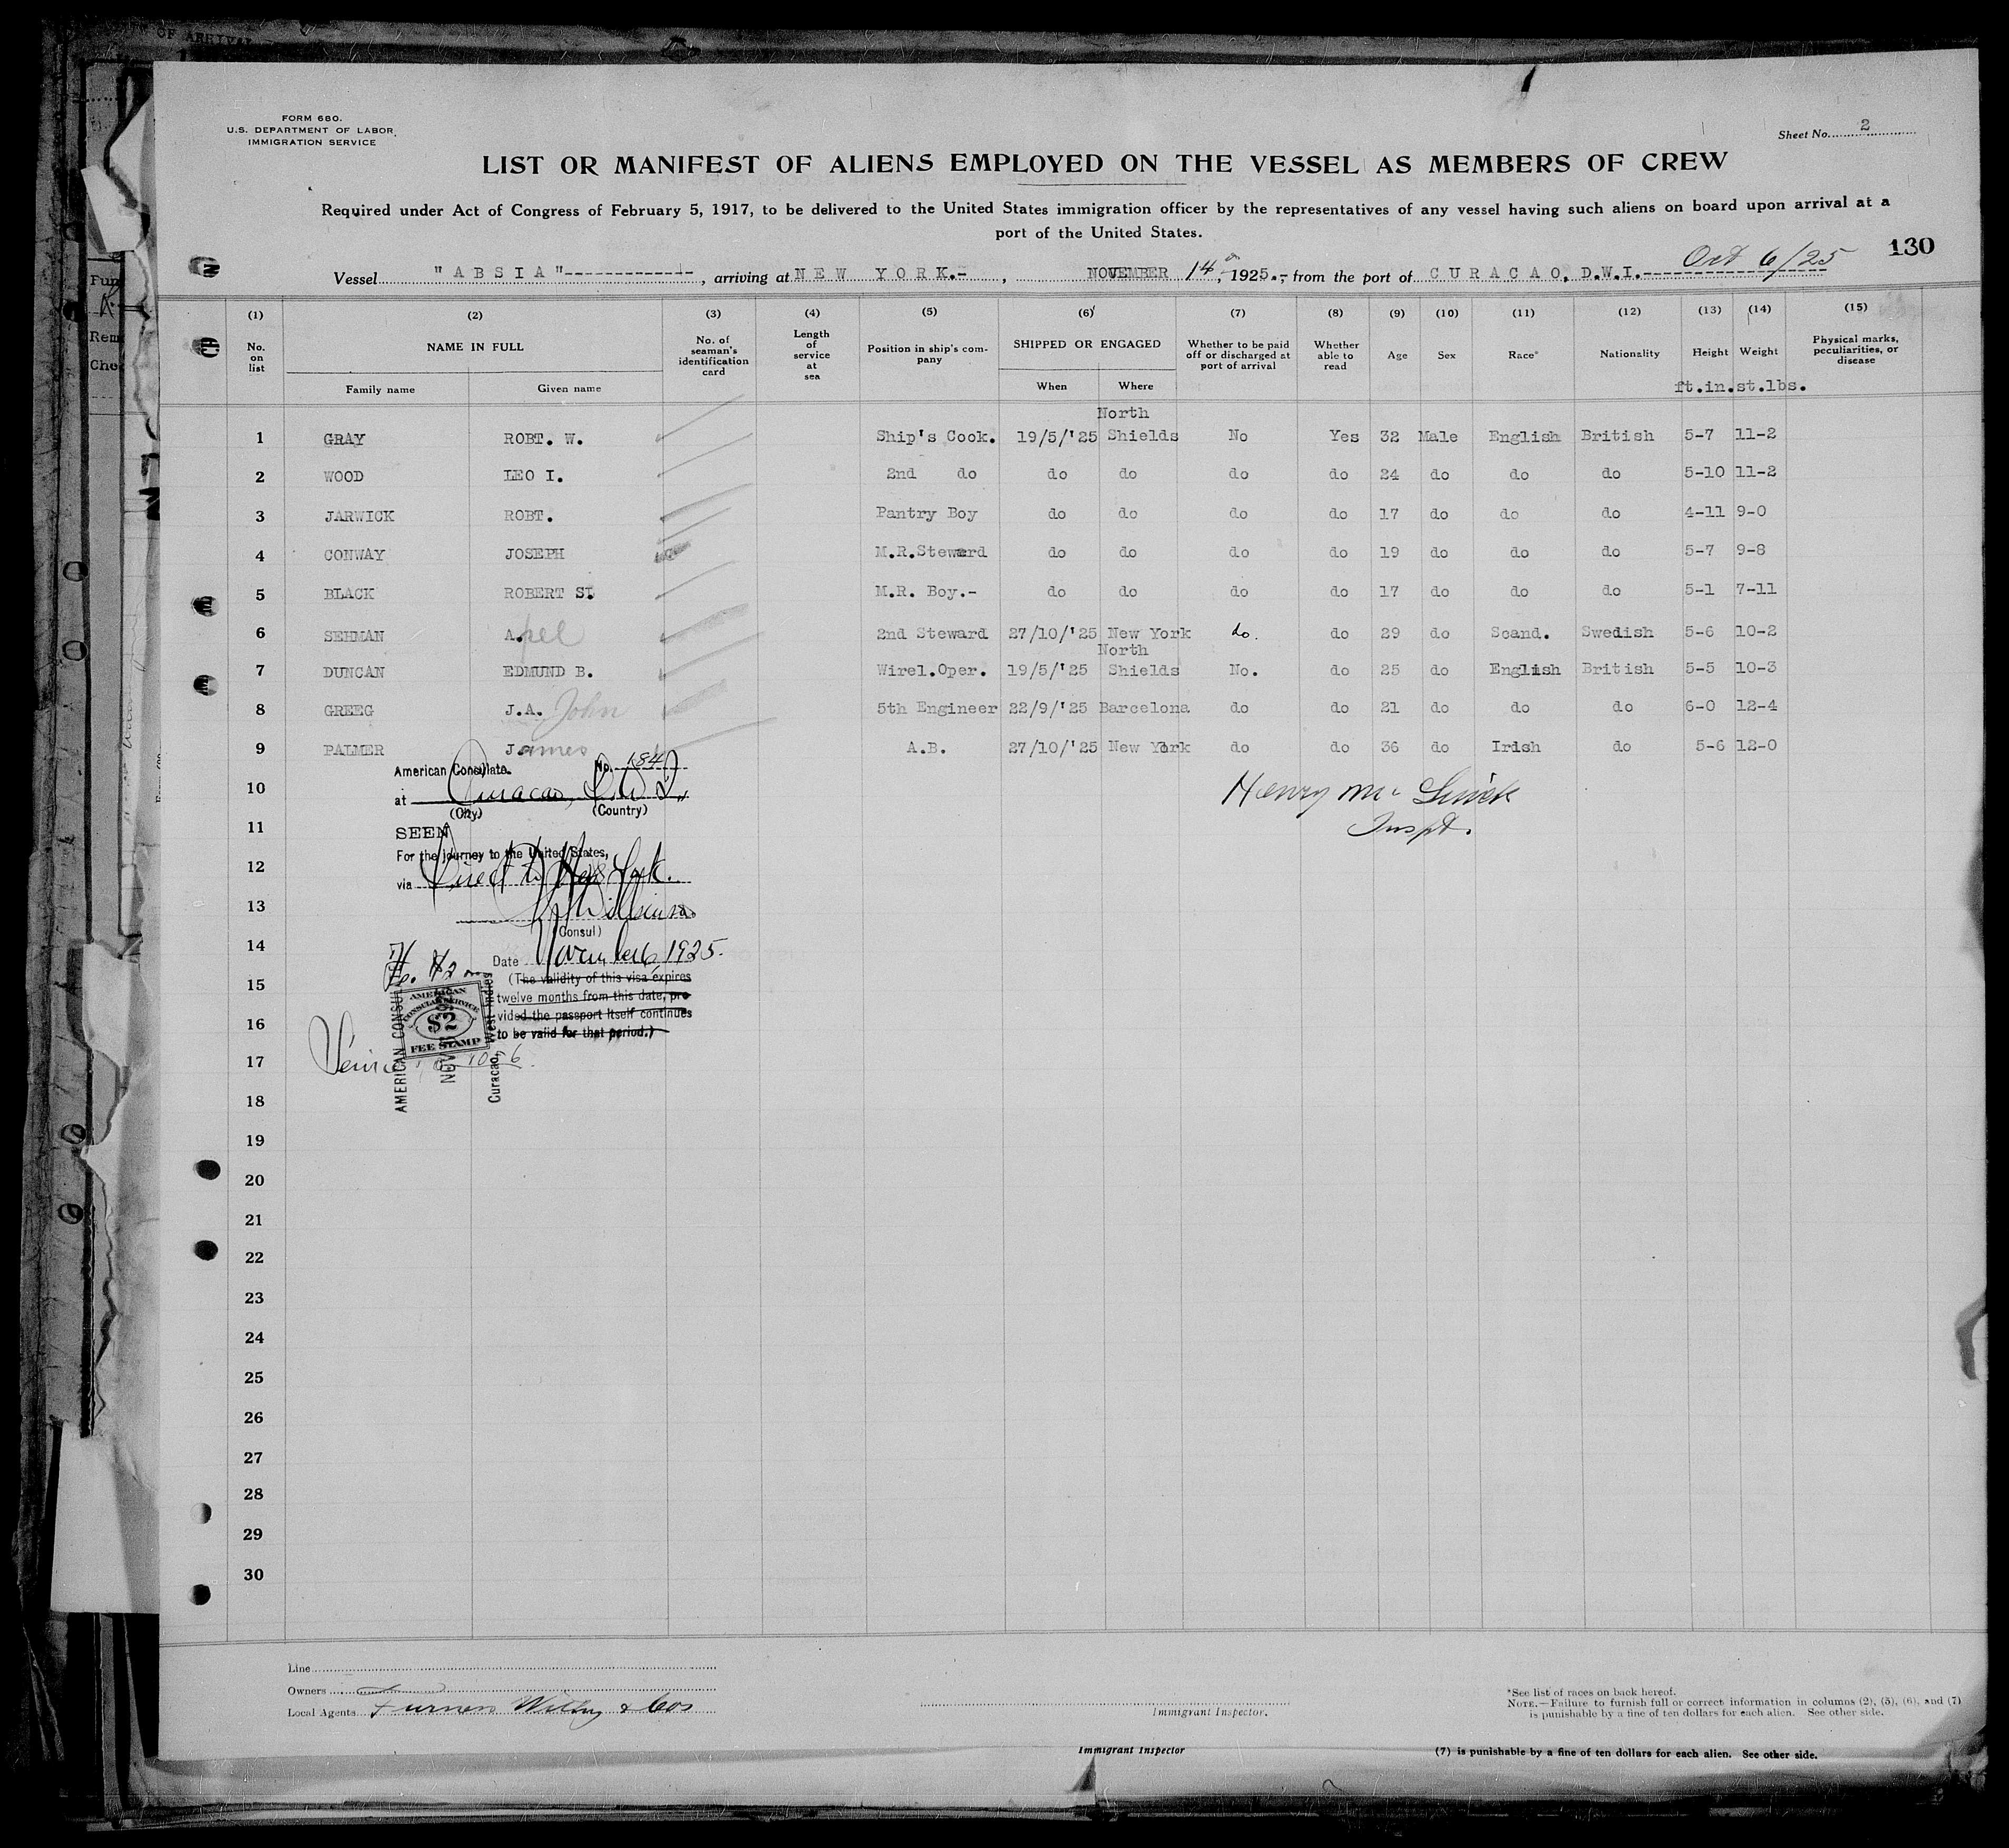 OF ARRIVAL
FORM 680.
U.S. DEPARTMENT OF LABOR
IMMIGRATION SERVICE
Sheet No. 2
LIST OR MANIFEST OF ALIENS EMPLOYED ON THE VESSEL AS MEMBERS OF CREW
Required under Act of Congress of February 5, 1917, to be delivered to the United States immigration officer by the representatives of any vessel having such aliens on board upon arrival at a
port of the United States.
130
Oct 6/25
Vessel "ABSIA"-------------, arriving at NEW YORK.-, NOVEMBER 14th, 1925.-, from the port of CURACAO, D.W.I.------------------
(1) (2) (3) (4) (5) (6) (7) (8) (9) (10) (11) (12) (13) (14) (15)
No. on list NAME IN FULL No. of seaman's identification card Length of service at sea Position in ship's company SHIPPED OR ENGAGED Whether to be paid off or discharged at port of arrival Whether able to read Age Sex Race* Nationality Height Weight Physical marks, peculiarities, or disease
Family name Given name When Where ft.in.st.lbs.
North
1 GRAY ROBT. W. Ship's Cook. 19/5/'25 Shields No Yes 32 Male English British 5-7 11-2
2 WOOD LEO I. 2nd do do do do do 24 do do do 5-10 11-2
3 JARWICK ROBT. Pantry Boy do do do do 17 do do do 4-11 9-0
4 CONWAY JOSEPH M.R.Steward do do do do 19 do do do 5-7 9-8
5 BLACK ROBERT ST. M.R. Boy.- do do do do 17 do do do 5-1 7-11
6 SEHMAN A.pel 2nd Steward 27/10/'25 New York do. do 29 do Scand. Swedish 5-6 10-2
North
7 DUNCAN EDMUND B. Wirel.Oper. 19/5/'25 Shields No. do 25 do English British 5-5 10-3
8 GREEG J.A. John 5th Engineer 22/9/'25 Barcelona do do 21 do do do 6-0 12-4
9 PALMER James A.B. 27/10/'25 New York do do 36 do Irish do 5-6 12-0
American Consulate. No. 184
10
at Curacao, D.W.I.
(City) (Country)
Inspt.
11
SEEN
For the journey to the United States,
12
via Direct to New York.
13
(Consul)
14
Date November 6, 1925.
No. 42
15
(The validity of this visa expires
twelve months from this date, pro-
vided the passport itself continues
to be valid for that period.)
16
AMERICAN
CONSULAR SERVICE
$2
FEE STAMP
AMERICAN CONSUL
NOV
Curacao, West Indies
17
18
19
20
21
22
23
24
25
26
27
28
29
30
Line
Owners
Local Agents Furness Withy & Cos
Immigrant Inspector.
*See list of races on back hereof.
NOTE.—Failure to furnish full or correct information in columns (2), (5), (6), and (7)
is punishable by a fine of ten dollars for each alien. See other side.
Immigrant Inspector
(7) is punishable by a fine of ten dollars for each alien. See other side.